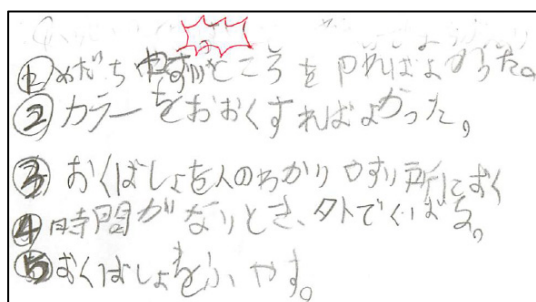 ①めだちやすいところをやればよかった。
②カラーをおおくすればよかった。
③おくばしょを人のわかりやすい所におく
④時間がないとき、外でくばる。
⑤おくばしょをふやす。